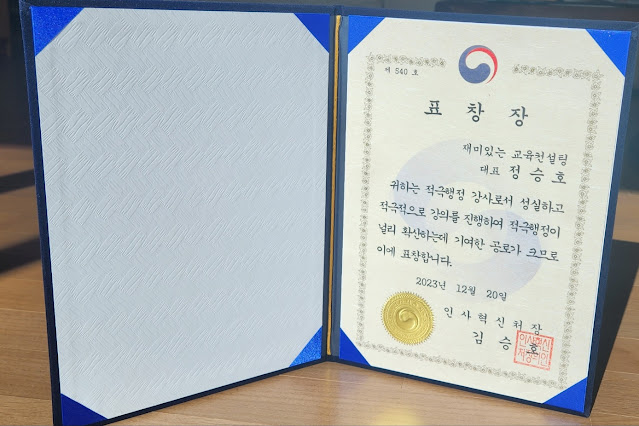 제 540 호
표 창 장
재미있는 교육컨설팅
대표 정 승 호
귀하는 적극행정 강사로서 성실하고
적극적으로 강의를 진행하여 적극행정이
널리 확산하는데 기여한 공로가 크므로
이에 표창합니다.
2023년 12월 20일
인 사 혁 신 처 장
김 승 호
인사혁신
처장의인